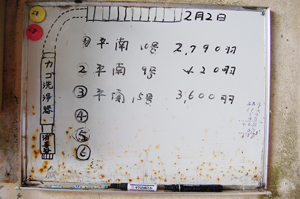 2月2日
① 平南10号 2,790羽
② 平南9号 420羽
③ 平南15号 3,600羽
④
⑤
⑥
カゴ洗浄器